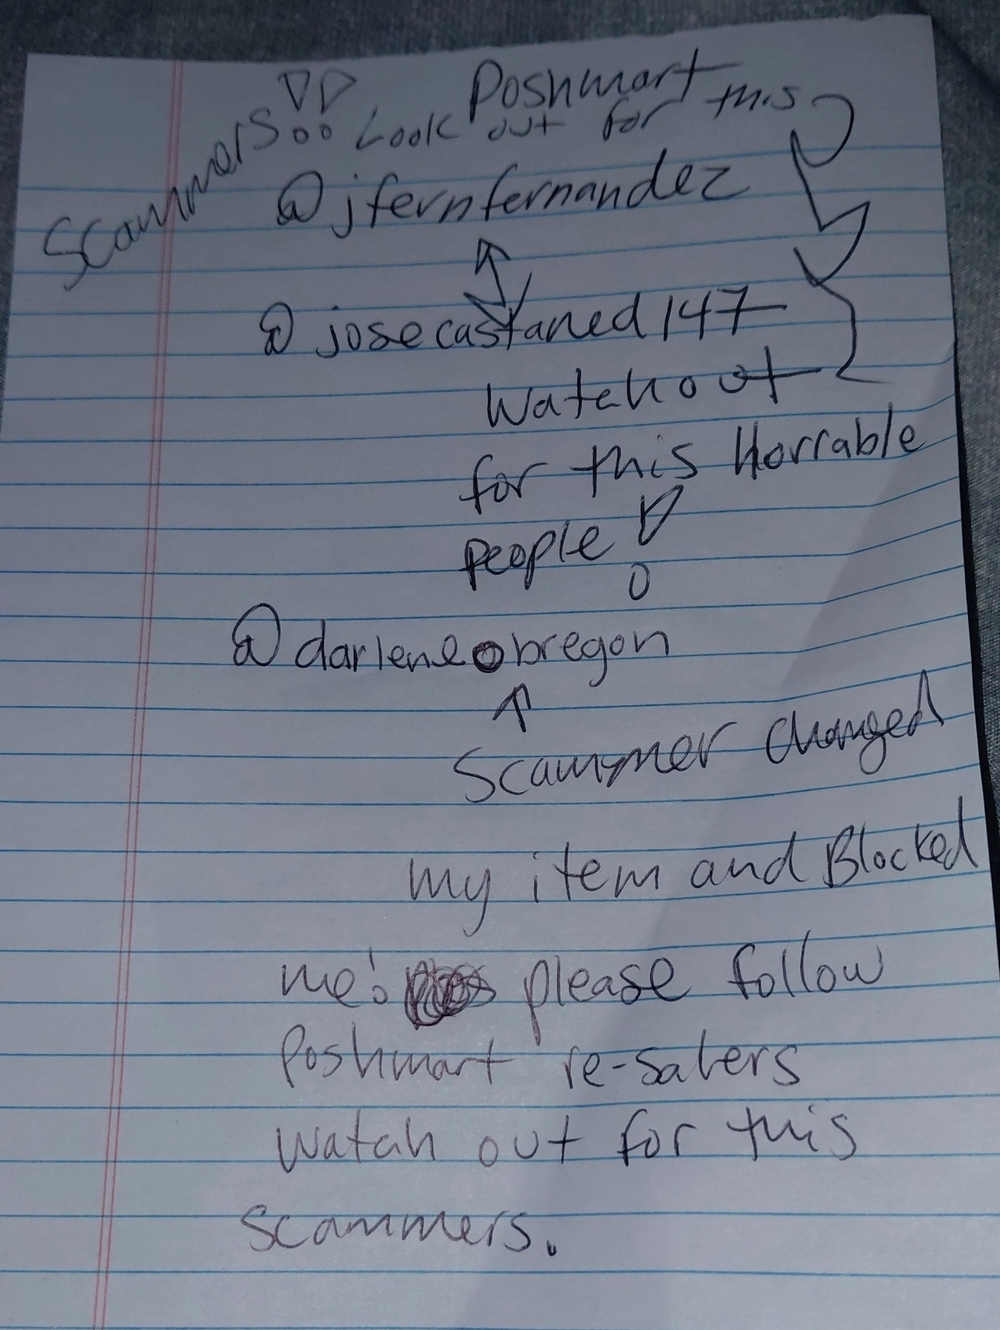 Poshmart
Scammers!! Look out for this
@jfernfernandez
@josecastaned147
Watch out
for this Horrable
people!
@darleneobregon
Scammer changed
my item and Blocked
me! please follow
Poshmart re-salers
Watch out for this
scammers.